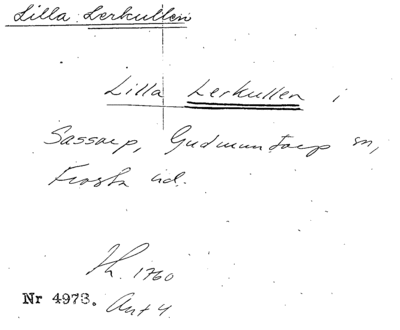 Lilla Lerkullen
Lilla Lerkullen i
Sassarp, Gudmuntorp sn,
Frosta hd.
Jb. 1760
Nr 4973. Ant 4